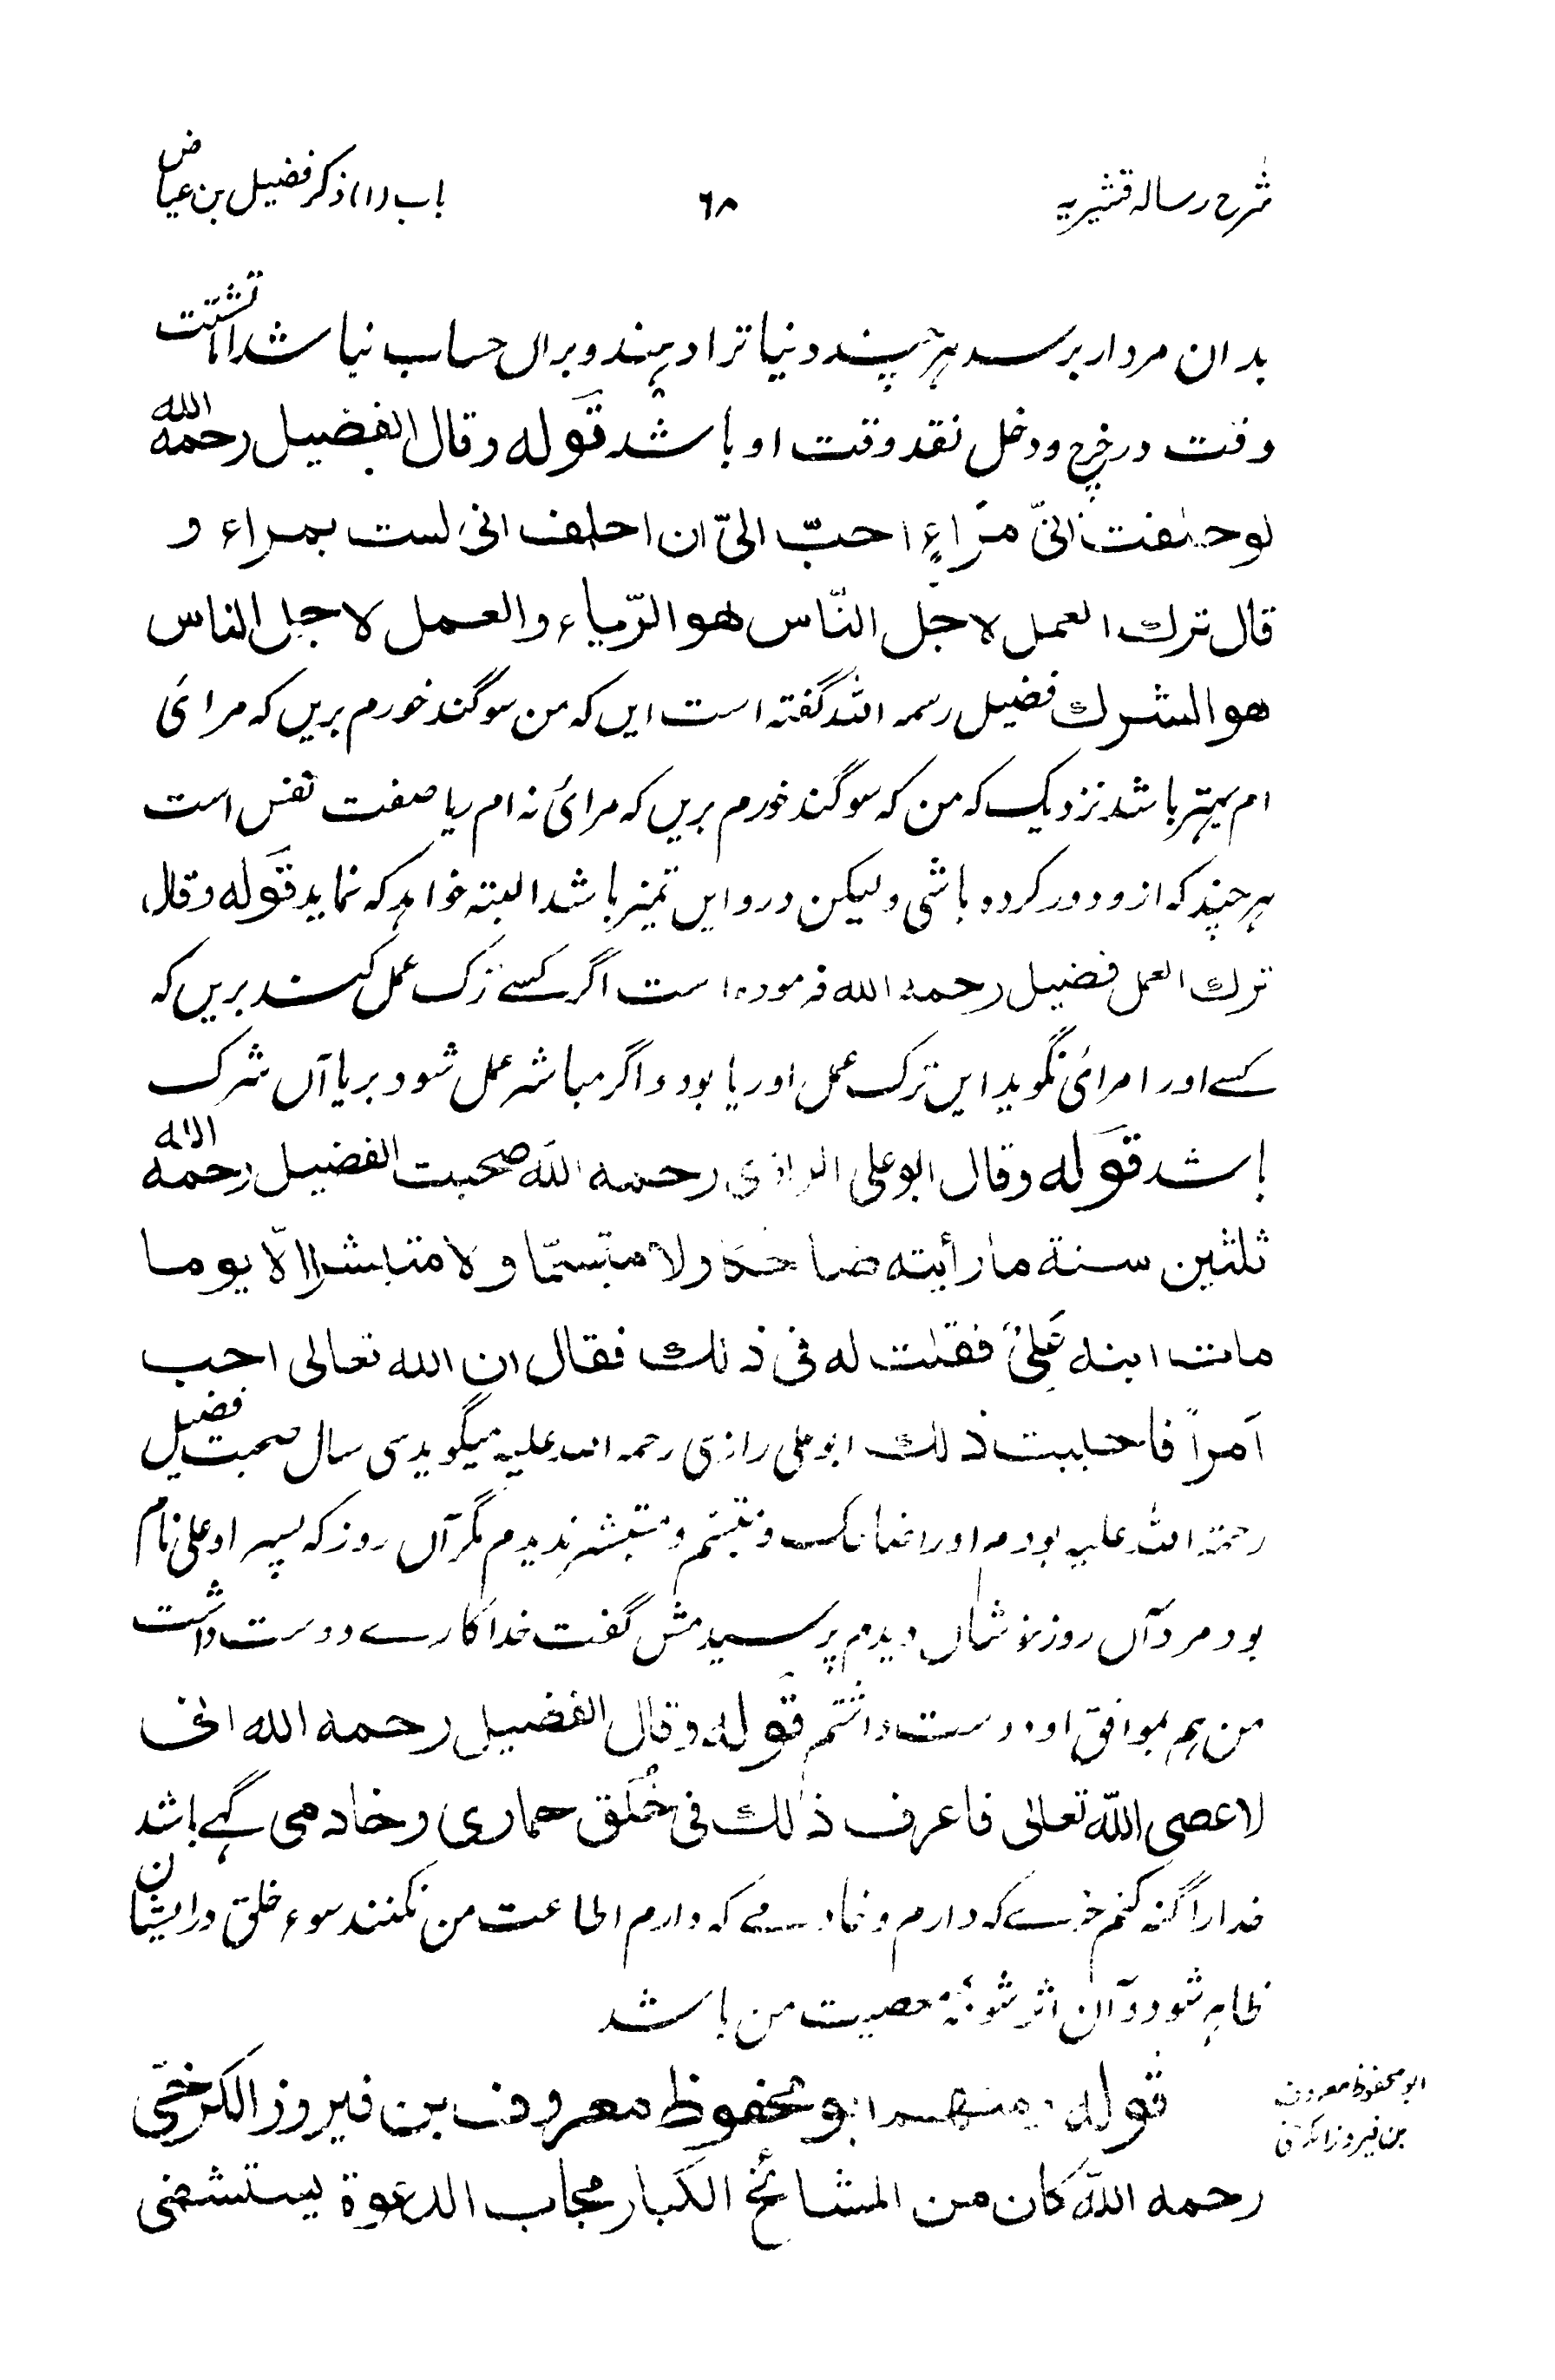 شرح رساله قشیریه ٦٨ باب (۱) ذکر فضیل بن عیاض
بدان مردار برسد هرچند دنیا ترا دهند و براں حساب نباشد اما تشتت
وقت در خرچ و دخل نقد وقت او باشد قوله وقال الفضیل رحمه الله
لو حلفت انیّ مراءٍ احبّ الیّ ان احلف انی لست بمراء و
قال ترك العمل لاجل النّاس هو الرّیاء والعمل لاجل الناس
هو الشرك فضیل رحمه الله گفته است ایں که من سوگند خورم بریں که مرائی
ام بهتر باشد نزدیک که من که سوگند خورم بریں که مرائی نه ام ریا صفت نفس است
هرچند که از و دور کرده باشی ولیکن درو ایں تمیز باشد البته خواهد که نماید قوله وقال
ترك العمل فضیل رحمه الله فرموده است اگر کسے ترک عمل کند بریں که
کسے اورا مرائی نگوید ایں ترک عمل اوریا بود و اگر مباشر عمل شود بریا آں شرک
باشد قوله وقال ابوعلی الرازی رحمه الله صحبت الفضیل رحمه الله
ثلثین سنة ما رأیته ضاحكا ولا متبسّما ولا متبشرا الّا یوما
مات ابنه علیّ فقلت له فی ذلك فقال ان الله تعالی احب
امراً فاحببت ذلك ابوعلی رازی رحمه الله علیه میگوید سی سال صحبت فضیل
رحمة الله علیه بودم اورا ضاحک و متبسّم و متبشر ندیدم مگر آں روز که پسر او علی نام
بود مرد آں روز خوشحال دیدم پرسیدمش گفت خدا کارے دوست داشت
من هم بموافق او دوست داشتم قوله وقال الفضیل رحمه الله انی
لاعصی الله تعالی فاعرف ذلك فی خُلُق حماری وخادمی گهے باشد
خدا را گنه کنم خرے که دارم و خادمے که دارم اطاعت من نکنند سوء خلق در ایشان
ظاهر شود و آن اثر شومئ معصیت من باشد
قوله ومنهم ابو محفوظ معروف بن فیروز الکرخیّ
ابو محفوظ معروف
بن فیروز الکرخی
رحمه الله کان من المشائخ الکبار مجاب الدعوة یستشفی